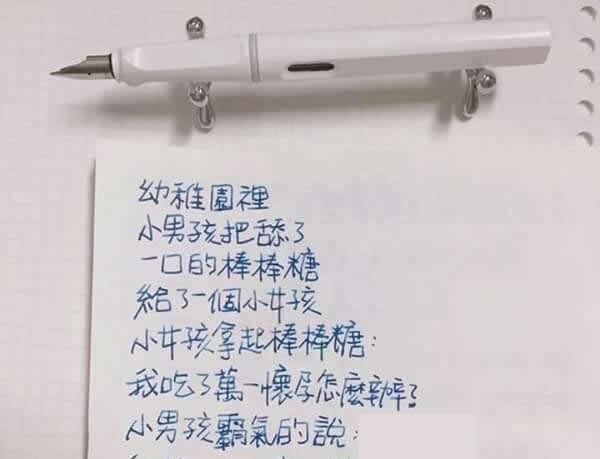 幼稚園裡
小男孩把舔了
一口的棒棒糖
給了一個小女孩
小女孩拿起棒棒糖：
我吃了萬一懷孕怎麼辦？
小男孩霸氣的說：